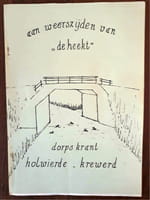 aan weerszyden van
„de heekt"
dorps krant
holwierde . krewerd